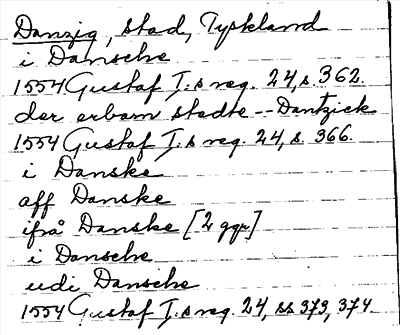 Danzig, stad, Tyskland
i Dansche
1554 Gustaf I:s reg. 24, s. 362.
der erbarn stadte -- Dantzick
1554 Gustaf I:s reg. 24, s. 366.
i Danske
aff Danske
ifrå Danske [2 ggr]
i Dansche
udi Dansche
1554 Gustaf I:s reg. 24, ss 373, 374.